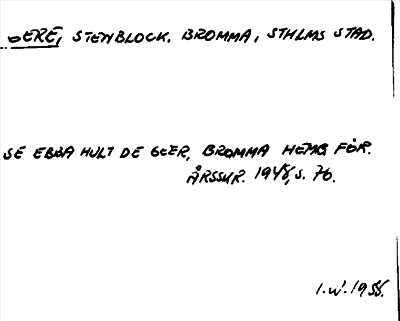 GERE, STENBLOCK. BROMMA, STHLMS STAD.
SE EBBA HULT DE GEER, BROMMA HEMB FÖR.
ÅRSSKR. 1948, S. 76.
I.W. 1955.